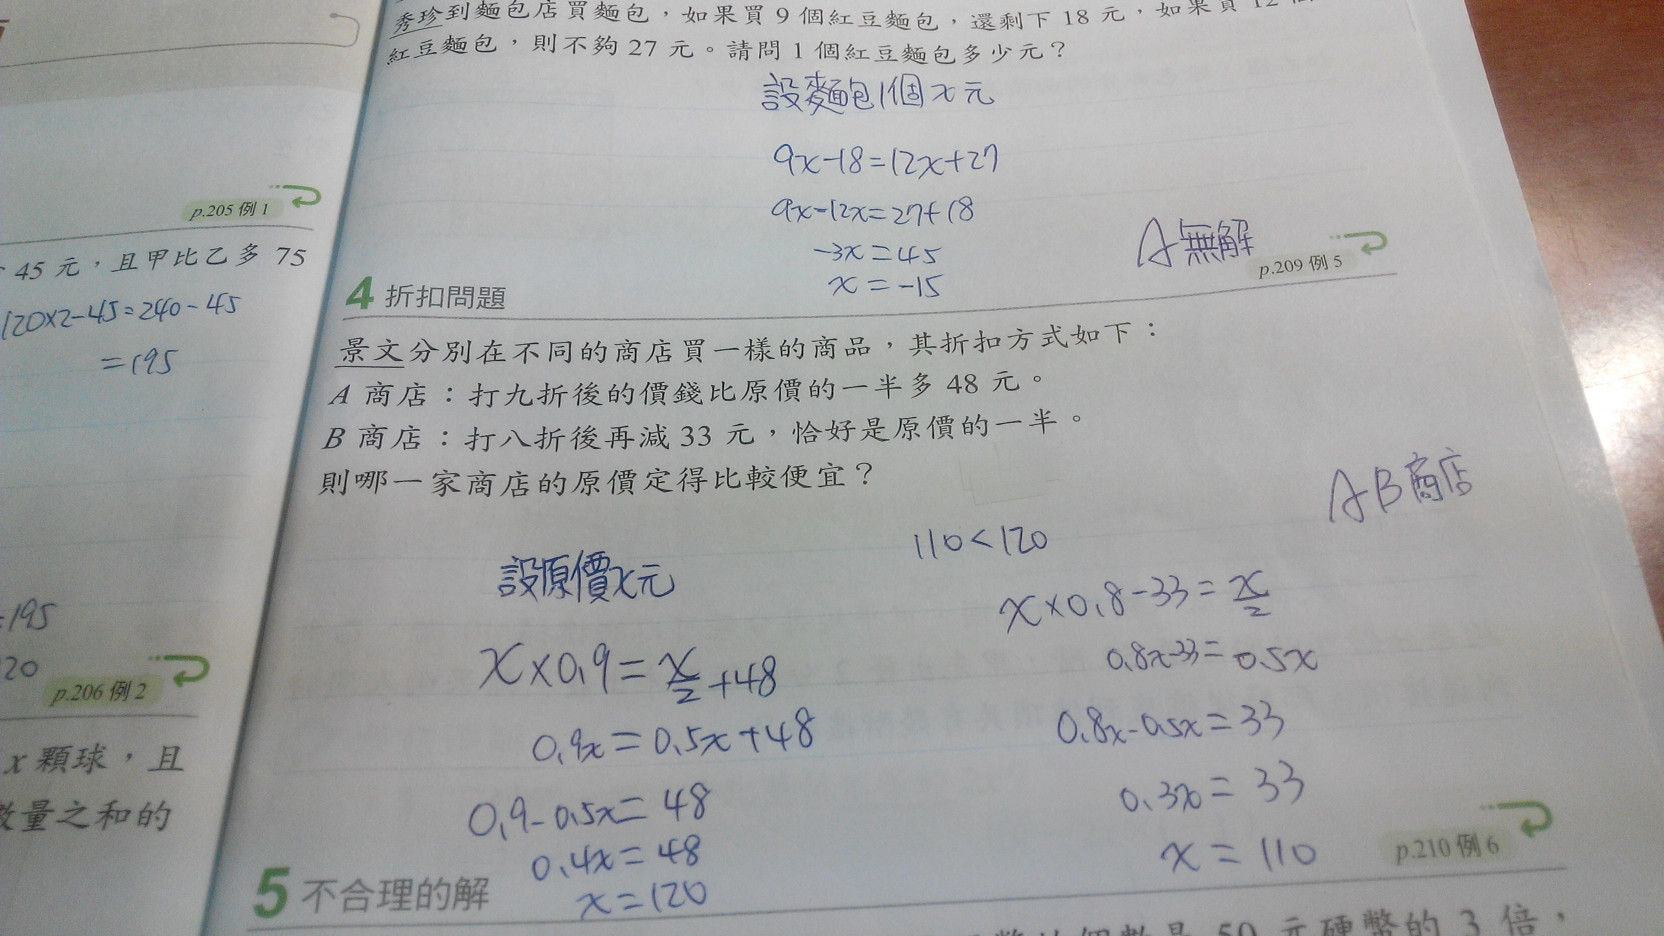 秀珍到麵包店買麵包，如果買 9 個紅豆麵包，還剩下 18 元，如果買 12
紅豆麵包，則不夠 27 元。請問 1 個紅豆麵包多少元？
設麵包1個x元
9x-18=12x+27
9x-12x=27+18
-3x=45
x=-15
A無解
p.209 例 5
p.205 例 1
45 元，且甲比乙多 75
120×2-45=240-45
=195
=195
20
p.206 例 2
x 顆球，且
數量之和的
4 折扣問題
景文分別在不同的商店買一樣的商品，其折扣方式如下：
A 商店：打九折後的價錢比原價的一半多 48 元。
B 商店：打八折後再減 33 元，恰好是原價的一半。
則哪一家商店的原價定得比較便宜？
A B商店
110<120
設原價x元
x×0.9=x/2+48
0.9x=0.5x+48
0.9-0.5x=48
0.4x=48
x=120
x×0.8-33=x/2
0.8x-33=0.5x
0.8x-0.5x=33
0.3x=33
x=110
p.210 例 6
5 不合理的解
個數是 50 元硬幣的 3 倍，